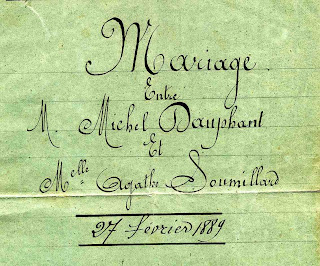 Mariage
Entre
M. Michel Dauphant
Et
Melle Agathe Soumillard
27 février 1889